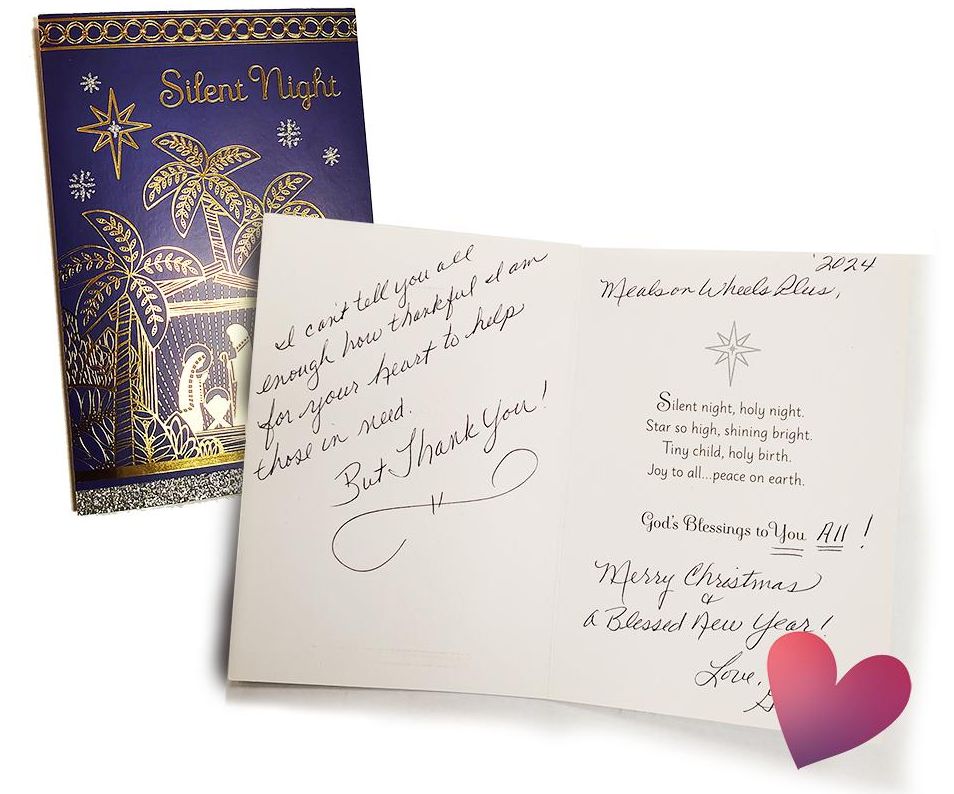 Silent Night
I can't tell you all
enough how thankful I am
for your heart to help
those in need.
But Thank You!
'2024
Meals on Wheels Plus,
Silent night, holy night.
Star so high, shining bright.
Tiny child, holy birth.
Joy to all...peace on earth.
God's Blessings to You All!
Merry Christmas
&
a Blessed New Year!
Love,